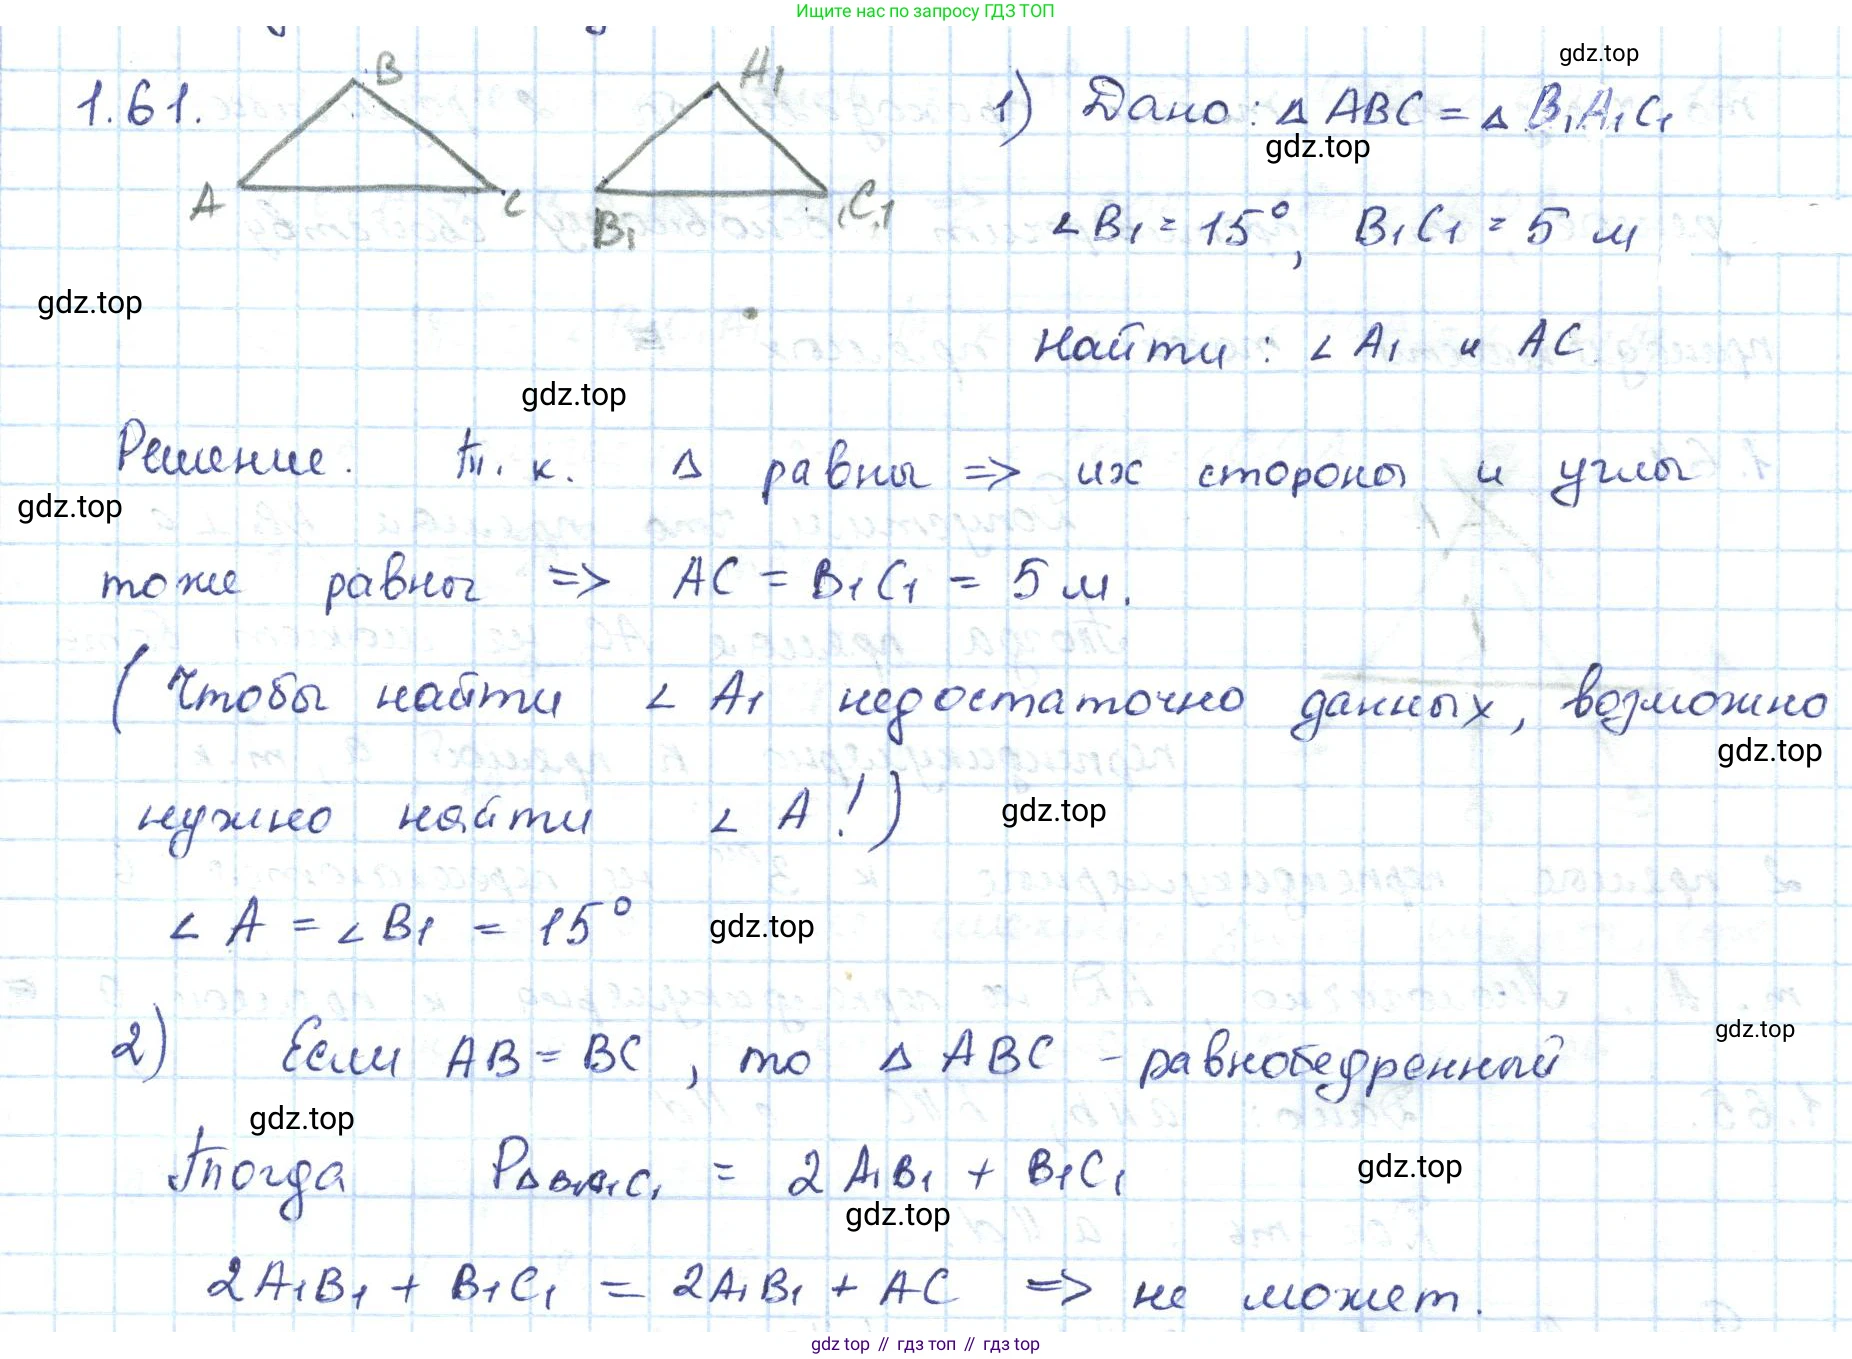 Ищите нас по запросу ГДЗ ТОП
gdz.top
1.61.
B
A
C
A₁
B₁
C₁
1) Дано: Δ ABC = Δ B₁A₁C₁
gdz.top
∠B₁ = 15°, B₁C₁ = 5 м
gdz.top
Найти: ∠A₁ и AC
gdz.top
Решение. Т. к. Δ равны => их стороны и углы
gdz.top
тоже равны => AC = B₁C₁ = 5 м.
(Чтобы найти ∠A₁ недостаточно данных, возможно
gdz.top
нужно найти ∠A!)
gdz.top
∠A = ∠B₁ = 15°
gdz.top
2) Если AB = BC, то Δ ABC - равнобедренный
gdz.top
gdz.top
Тогда PΔB₁A₁C₁ = 2A₁B₁ + B₁C₁
gdz.top
gdz.top
2A₁B₁ + B₁C₁ = 2A₁B₁ + AC => не может.
gdz.top // гдз топ // гдз top